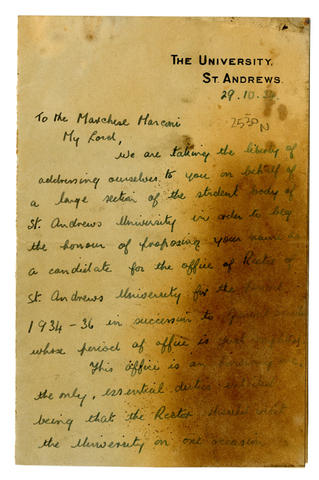 THE UNIVERSITY,
ST. ANDREWS.
29.10.
To the Marchese Marconi
My Lord,
We are taking the liberty of
addressing ourselves to you on behalf of
a large section of the student body of
St. Andrews University in order to beg
the honour of proposing your name as
a candidate for the office of Rector of
St. Andrews University for the
1934-36 in succession to
whose period of office is
This office is an
the only, essential duties
being that the Rector should visit
the University on one occasion